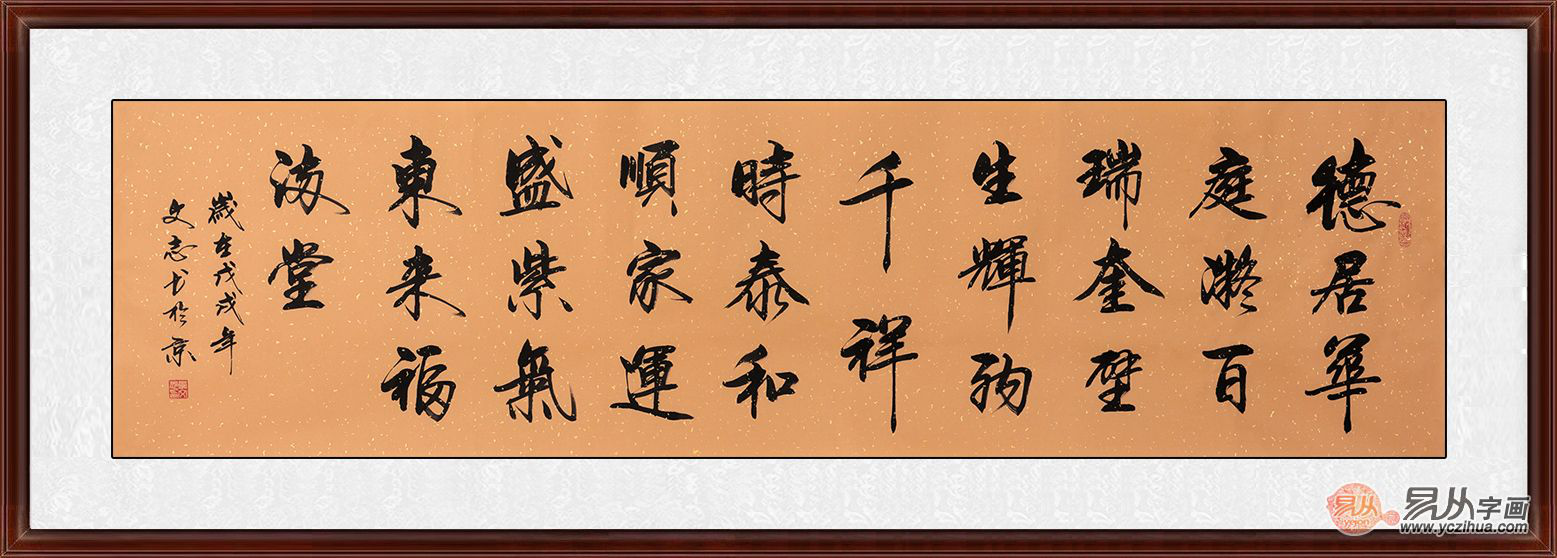 德居華
庭凝百
瑞奎壁
生輝納
千祥
時泰和
順家運
盛紫氣
東来福
满堂
歲在戊戌年
文志书於京
易从
易从字画
www.yczihua.com